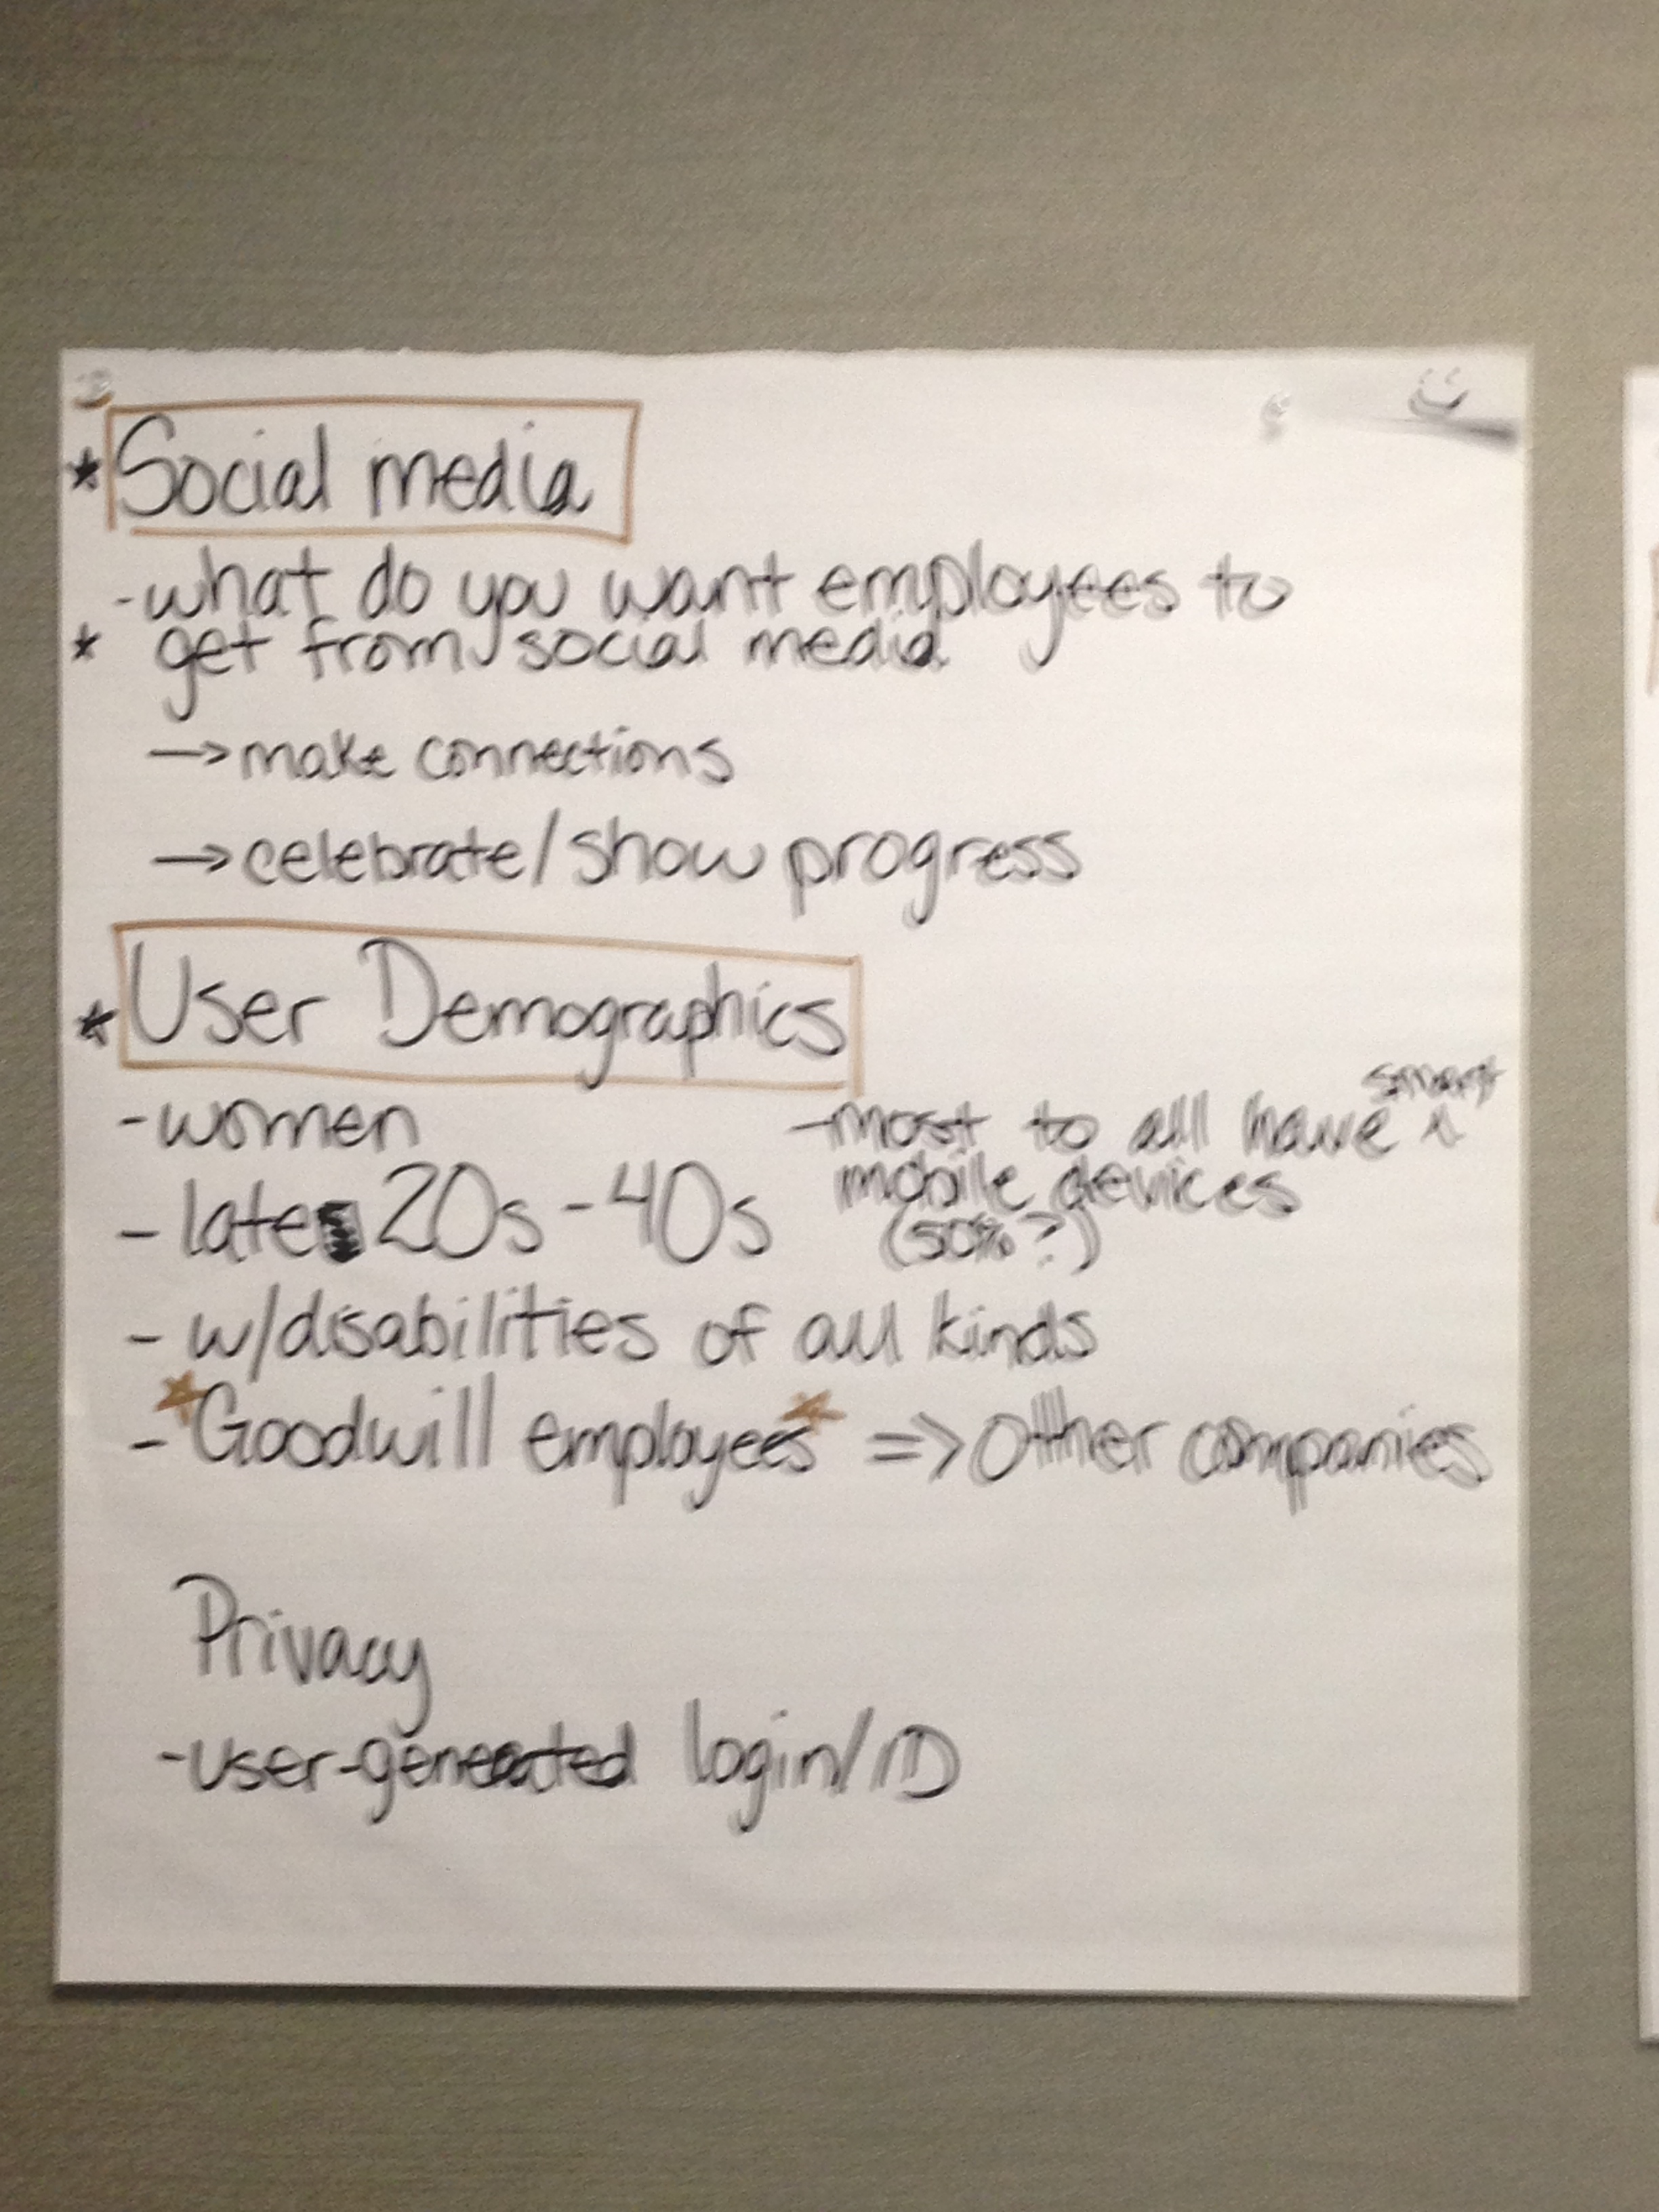 * Social media
- what do you want employees to
* get from social media
→ make connections
→ celebrate/show progress
* User Demographics
- women
- late 20s - 40s
- most to all have smart
mobile devices
(50% ?)
- w/disabilities of all kinds
- *Goodwill employees* => Other companies
Privacy
- user-generated login/ID